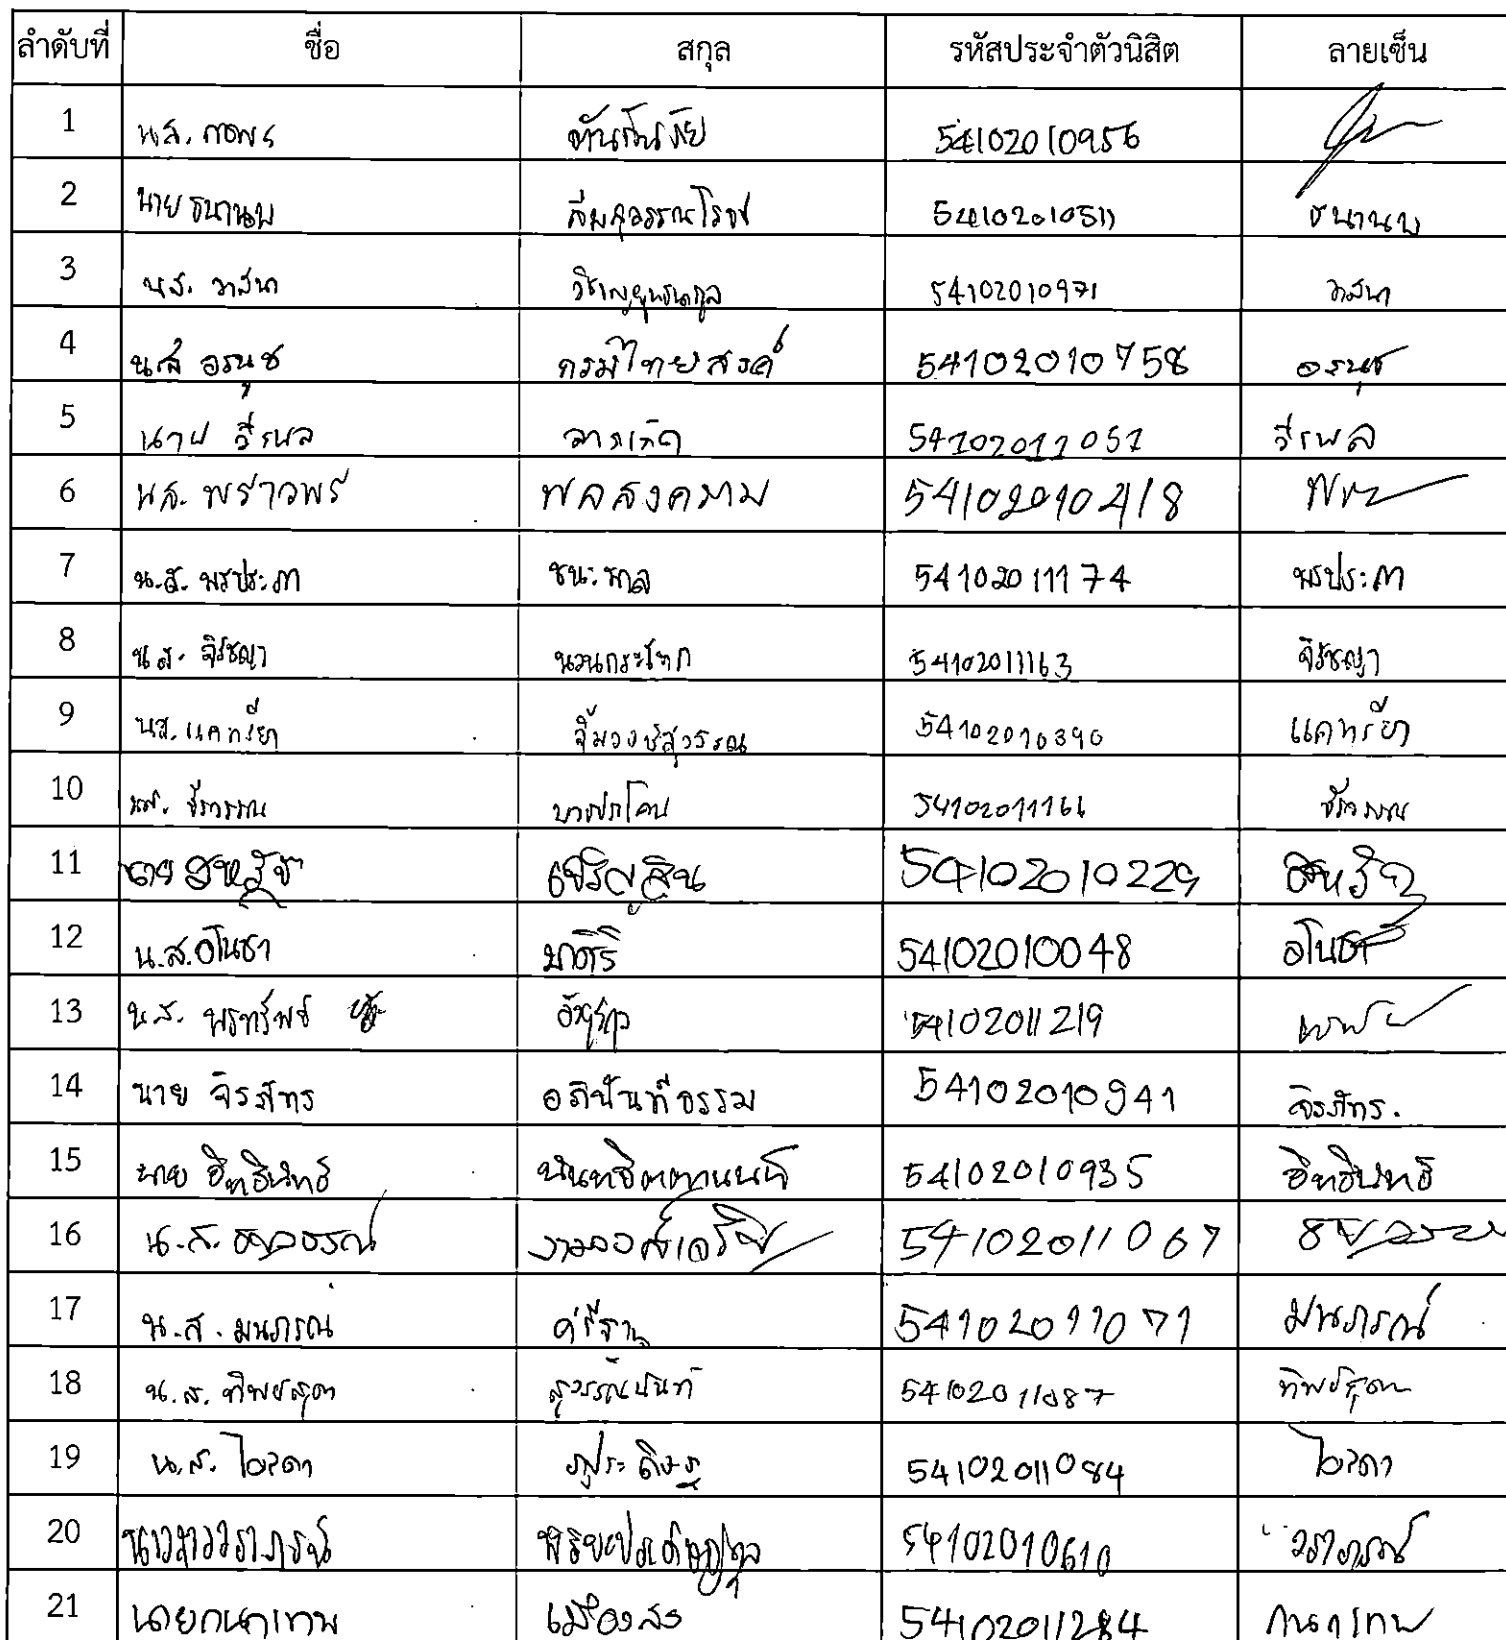 ลำดับที่ ชื่อ สกุล รหัสประจำตัวนิสิต ลายเซ็น
1 นส. ภอพร 54102010956
2 นาย ธนานพ ลิ้มสุวรรณโรจน์ 54102010511 ธนานพ
3 นส. วาสนา 54102010971 วาสนา
4 นส อรนุช กรมไทยสงค์ 54102010758 อรนุช
5 นาย วีรพล ลาภเกิด 54102011051 วีรพล
6 นส. พราวพร พลสงคราม 54102010418
7 น.ส. พรประภา ชนะชกล 54102011174 พรประภา
8 น.ส. จิรัชญา นวนกระโทก 54102011163 จิรัชญา
9 นส. แคทรียา จิ๋มวงษ์สุวรรณ 54102010390 แคทรียา
10 นส. ชีวาวรรณ บวชปโคน 54102011166
11 นาย สิหรัฐ เจริญสิน 54102010229
12 น.ส. อโนชา มาศิริ 54102010048 อโนชา
13 น.ส. พรทรัพย์ 54102011219
14 นาย จิรภัทร อภินันท์ธรรม 54102010941 จิรภัทร.
15 นาย อิทธินันท์ นันทจิตตานนท์ 54102010935 อิทธินันท์
16 น.ส. ธัญวรรณ์ งามวงศ์เจริญ 54102011067
17 น.ส. มนภรณ์ คำรีฐาน 54102011071 มนภรณ์
18 น.ส. ทิพย์สุดา สุวรรณนันท์ 54102011087 ทิพย์สุดา
19 น.ส. ไอลดา ภู่ประดิษฐ 54102011084 ไอลดา
20 นางสาววราภรณ์ 54102010610 วราภรณ์
21 นายกนกเทพ เมืองสง 54102011284 กนกเทพ